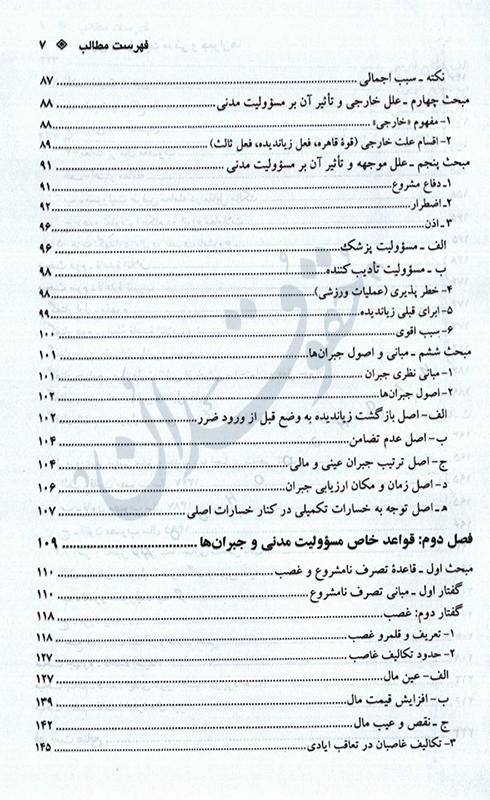 فهرست مطالب ◈ ۷
نکته ـ سبب اجمالی ........ ۸۷
مبحث چهارم ـ علل خارجی و تأثیر آن بر مسؤولیت مدنی ........ ۸۸
۱- مفهوم «خارجی» ........ ۸۸
۲- اقسام علت خارجی (قوهٔ قاهره، فعل زیاندیده، فعل ثالث) ........ ۸۹
مبحث پنجم ـ علل موجهه و تأثیر آن بر مسؤولیت مدنی ........ ۹۱
۱ـ دفاع مشروع ........ ۹۱
۲ـ اضطرار ........ ۹۲
۳ ـ اذن ........ ۹۶
الف ـ مسؤولیت پزشک ........ ۹۶
ب ـ مسؤولیت تأدیب‌کننده ........ ۹۸
۴- خطر پذیری (عملیات ورزشی) ........ ۹۸
۵- ابرای قبلی زیاندیده ........ ۹۹
۶- سبب اقوی ........ ۱۰۰
مبحث ششم ـ مبانی و اصول جبران‌ها ........ ۱۰۱
۱- مبانی نظری جبران ........ ۱۰۱
۲- اصول جبران‌ها ........ ۱۰۲
الف- اصل بازگشت زیاندیده به وضع قبل از ورود ضرر ........ ۱۰۲
ب- اصل عدم تضامن ........ ۱۰۴
ج- اصل ترتیب جبران عینی و مالی ........ ۱۰۴
د- اصل زمان و مکان ارزیابی جبران ........ ۱۰۶
هـ- اصل توجه به خسارات تکمیلی در کنار خسارات اصلی ........ ۱۰۷
فصل دوم: قواعد خاص مسؤولیت مدنی و جبران‌ها ........ ۱۰۹
مبحث اول ـ قاعدهٔ تصرف نامشروع و غصب ........ ۱۱۰
گفتار اول ـ مبانی تصرف نامشروع ........ ۱۱۰
گفتار دوم: غصب ........ ۱۱۸
۱- تعریف و قلمرو غصب ........ ۱۱۸
۲- حدود تکالیف غاصب ........ ۱۲۷
الف- عین مال ........ ۱۲۷
ب- افزایش قیمت مال ........ ۱۳۹
ج ـ نقص و عیب مال ........ ۱۴۲
۳- تکالیف غاصبان در تعاقب ایادی ........ ۱۴۵